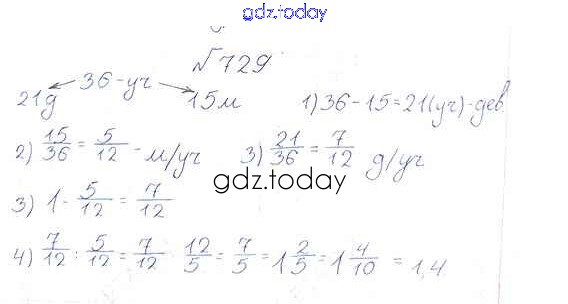 gdz.today
№729
36-уч
21д 15м 1) 36-15=21(уч)-дев.
2) 15/36 = 5/12 - м/уч 3) 21/36 = 7/12 д/уч
gdz.today
3) 1 - 5/12 = 7/12
4) 7/12 : 5/12 = 7/12 · 12/5 = 7/5 = 1 2/5 = 1 4/10 = 1,4